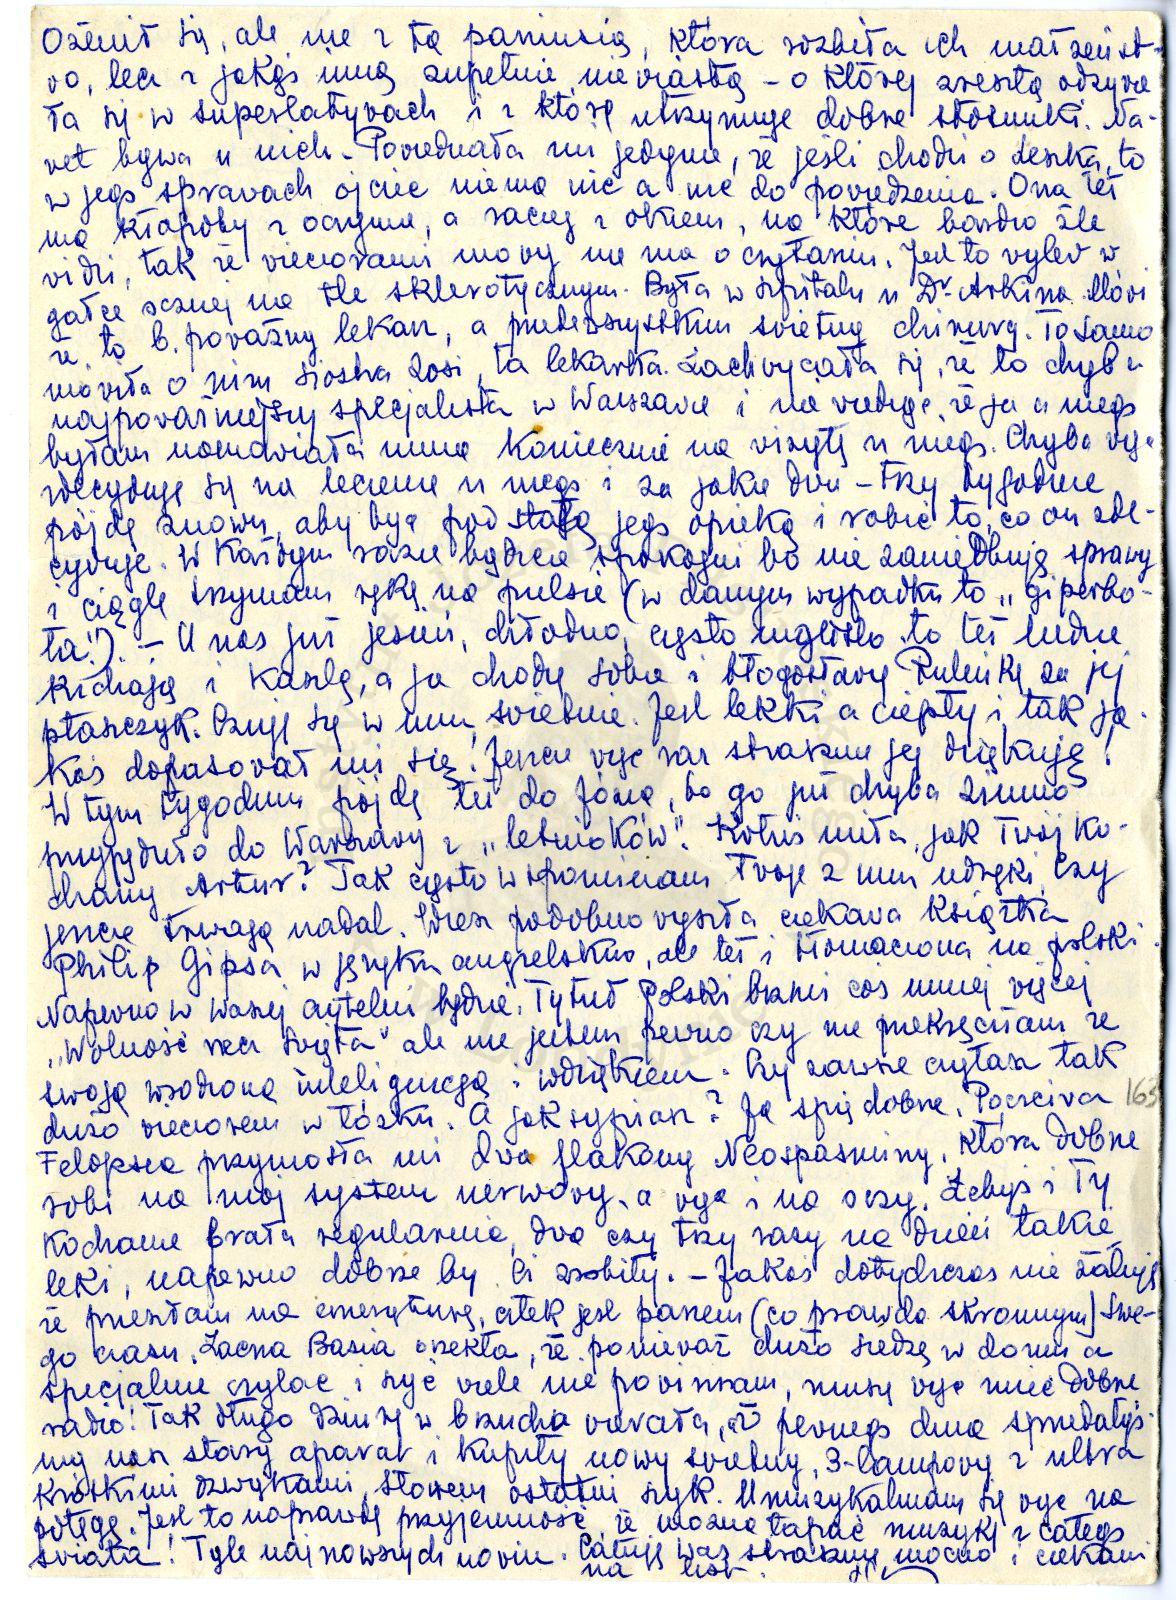 Ożenił się, ale nie z tą paniusią, która rozbiła ich małżeńst-
vo, lecz z jakąś inną zupełnie nieviastą – o której zresztą odzyva
ła się w superlatyvach i z którą utrzymuje dobre stosunki. Na-
vet byva u nich. Poviedziała mi jedynie, że jeśli chodzi o Leszka, to
w jego spravach ojciec niema nic a nic do poviedzenia. Ona też
ma kłopoty z oczyma, a raczej z okiem, na które bardzo źle
vidzi, tak że vieczorami movy nie ma o czytaniu. Jest to vylev w
gałce ocznej na tle sklerotycznym. Była w szpitalu u Dr. Arkina. Móvi
że to b. poważny lekarz, a przedevszystkim svietny chirurg. To samo
móviła o nim siostra Zosi, ta lekarka. Zachvycała się, że to chyba
najpoważniejszy specjalista w Warszavie i nie viedząc, że ja u niego
byłam namaviała mnie koniecznie na vizytę u niego. Chyba vyc
zdecyduję się na leczenie u niego i za jakie dva – trzy tygodnie
pójdę znowu, aby być pod stałą jego opieką i robić to, co on zde-
cyduje. W każdym razie bądźcie spokojni bo nie zaniedbuję spravy
i ciągle trzymam rękę na pulsie (w danym wypadku to „giperbo-
ła"!). – U nas już jesień, chłodno, często mglisto to też ludzie
kichają i kaszlą, a ja chodzę sobie i błogosłavię Ruleńkę za jej
płaszczyk. Czuję się w nim svietnie. Jest lekki a ciepły i tak ja-
koś dopasovał mi się! Jeszcze vyc raz straszni jej dziękuję!
W tym tygodniu pójdę też do Józia, bo go już chyba zimno
przypędziło do Warszavy z „letniaków". Kotuś miła, jak Tvój ko-
chany Artur? Tak często wspominam Tvoje z nim udręki, czy
jeszcze trvają nadal. Teraz podobno vyszła ciekava książka
Philip Gipsa w języku angielskim, ale też i tłomaczona na polski.
Napevno w waszej czytelni będzie. Tytuł polski brzmi coś mniej vięcej
„Wolność rzecz śvięta" ale nie jestem pevna czy nie przekręciłam ze
svoją wrodzoną inteligencją i wdziękiem. Czy zavsze czytasz tak
dużo vieczorem w łóżku. A jak sypiasz? Ja śpię dobrze. Poczciva
Feloksia przyniosła mi dva flakony Neospasminy, która dobrze
robi na mój system nervovy, a vyc i na oczy. Żebyś i Ty
Kochanie brała regularnie, dva czy trzy razy na dzień takie
leki, napewno dobrze by Ci zrobiły. – Jakoś dotychczas nie żałuję
że przeszłam na emeryturę, człek jest panem (co pravda skromnym) sve-
go czasu. Zacna Basia orzekła, że ponievaż dużo siedzę w domu a
specjalnie czytać i szyć viele nie povinnam, muszę vyc mieć dobre
radio! Tak długo dziurę w brzuchu vierciła, aż pevnego dnia sprzedałyś-
my nasz stary aparat i kupiły nowy svietny, 3-lampovy z ultra
krótkimi dzwiękami, słowem ostatni szyk. Umuzykalniam się vyc na
potęgę. Jest to napravdę przyjemność, że można łapać muzykę z całego
svjata! Tyle najnowszych novin. Całuję was straszni mocno i czekam
na list.